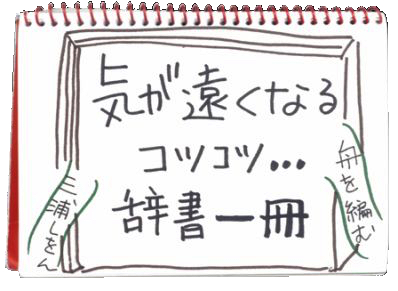 気が遠くなる
コツコツ...
辞書一冊
舟を編む
三浦しをん